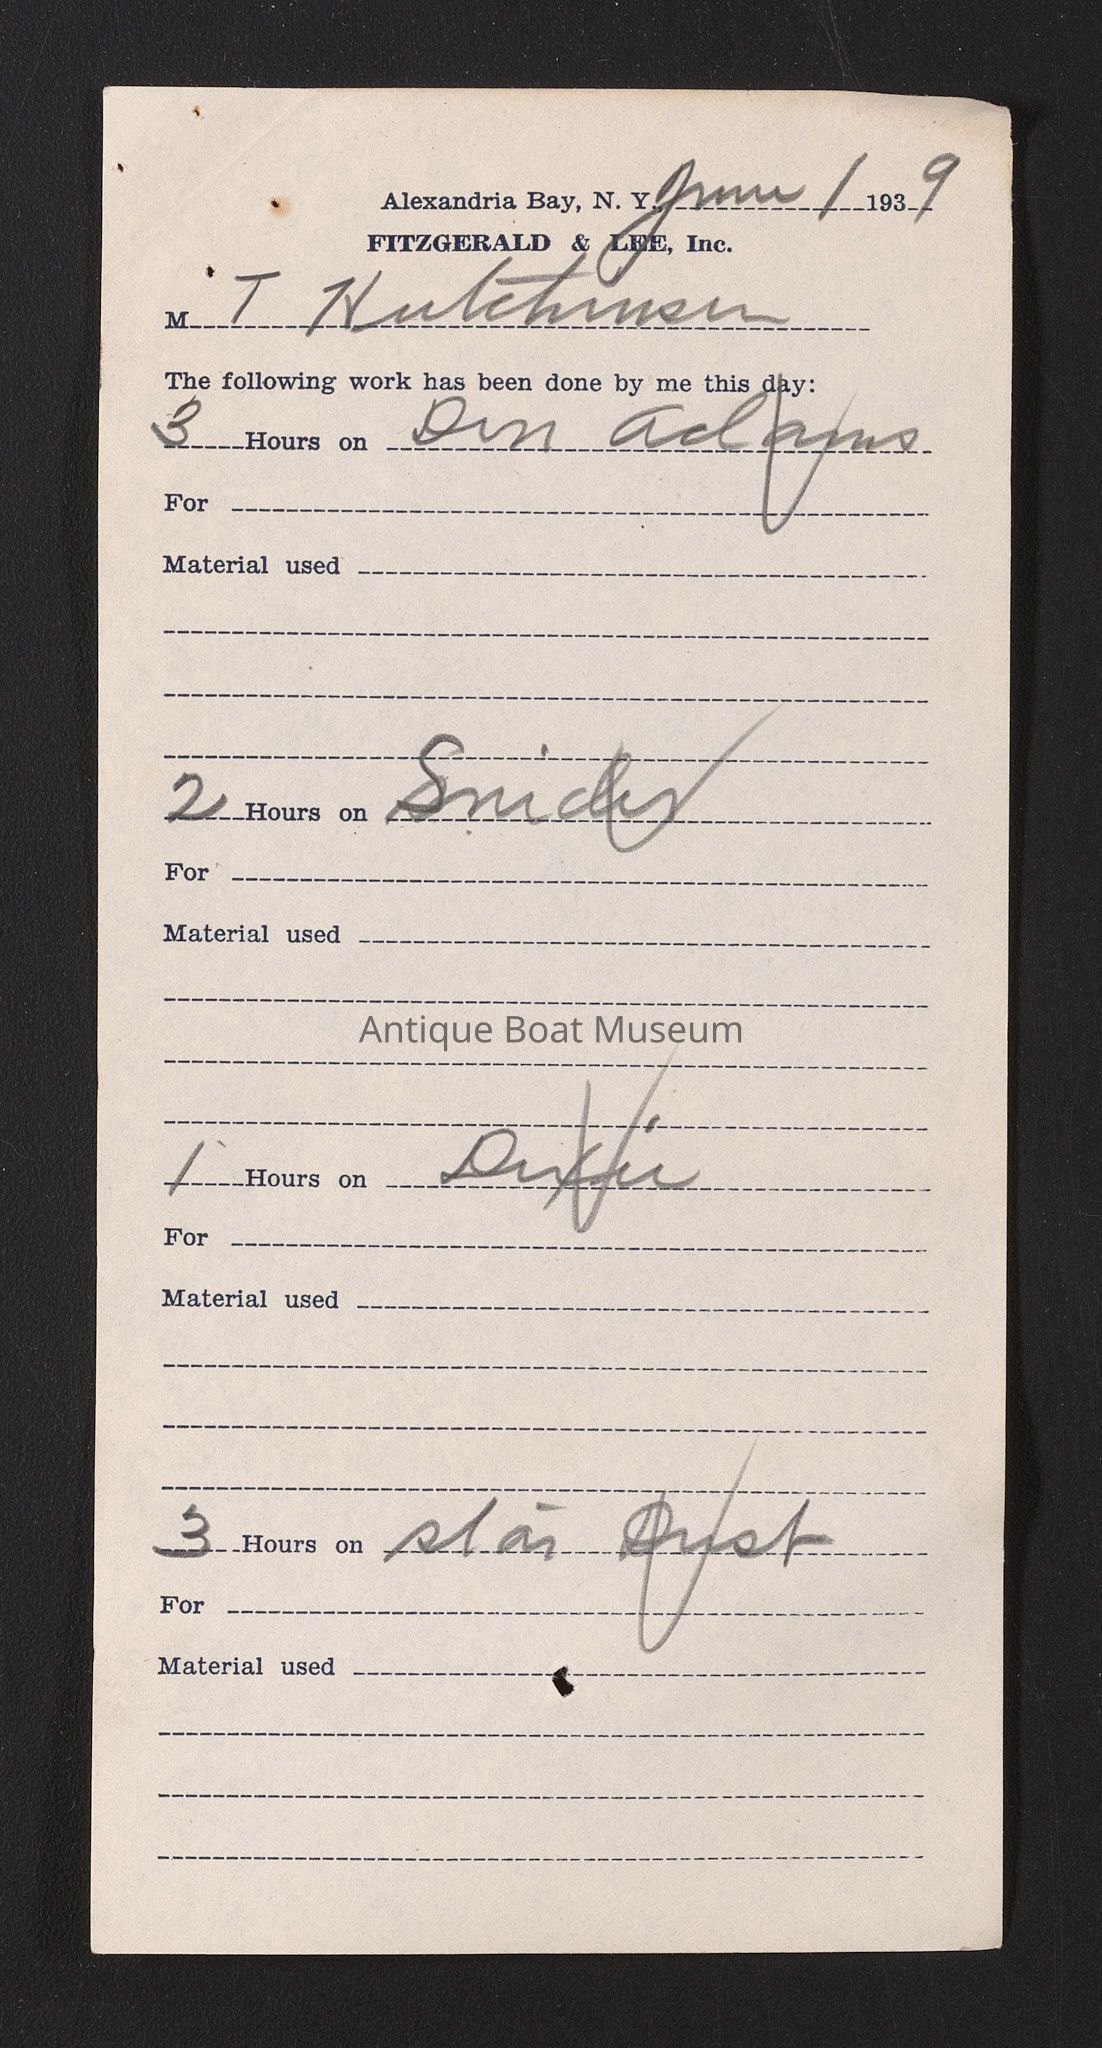 Alexandria Bay, N. Y. June 1 1939
FITZGERALD & LEE, Inc.
M T Hutchinson
The following work has been done by me this day:
3 Hours on Don Adams
For
Material used
2 Hours on Snider
For
Material used
Antique Boat Museum
1 Hours on Dixie
For
Material used
3 Hours on Star Dust
For
Material used